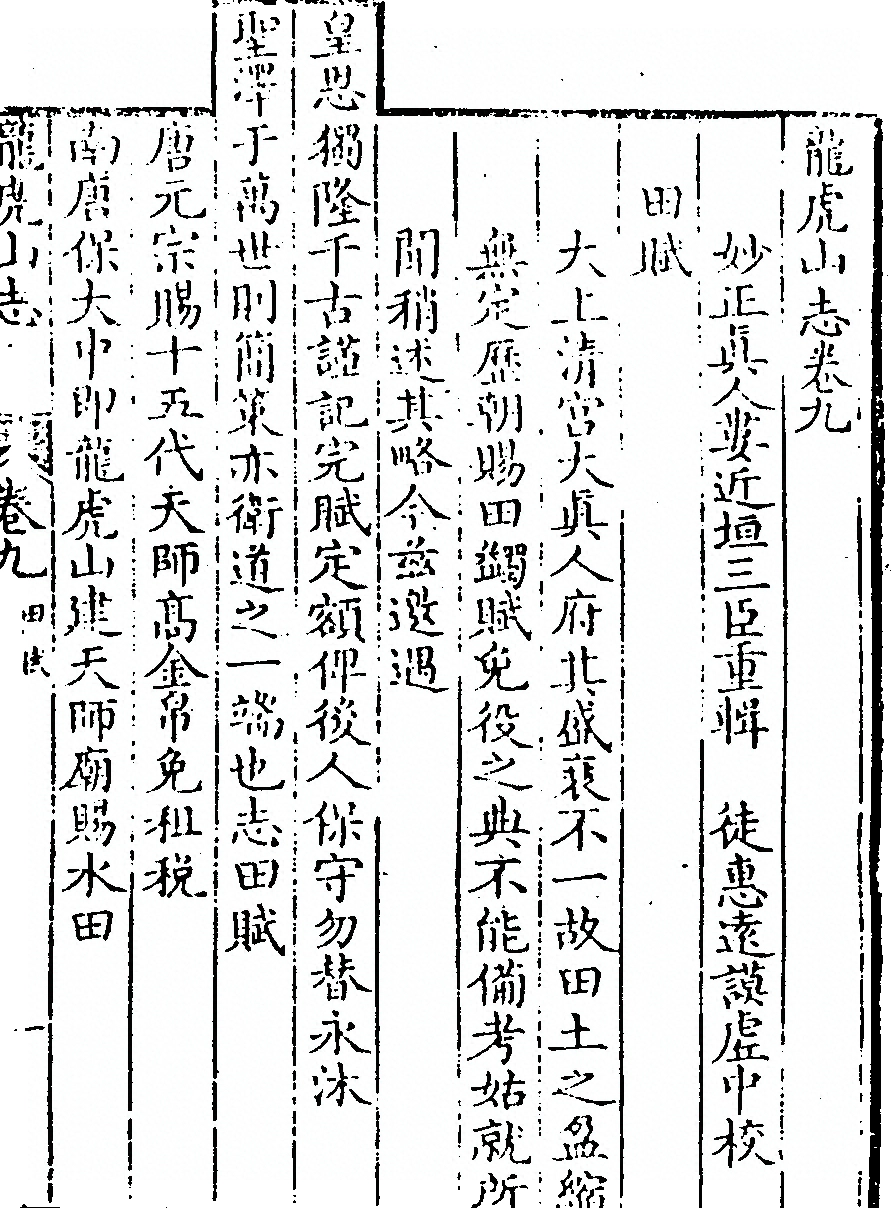 龍虎山志卷九
妙正眞人婁近垣三臣重輯　徒惠遠謨虛中校
田賦
大上清宮大眞人府其盛衰不一故田土之盈縮
無定歷朝賜田蠲賦免役之典不能備考姑就所
聞稍述其略今茲邀遇
皇恩獨隆千古謹記完賦定額仰後人保守勿替永沐
聖澤于萬世則簡策亦衛道之一端也志田賦
唐元宗賜十五代天師高金帛免租稅
南唐保大中即龍虎山建天師廟賜水田
龍虎山志　卷九　田賦　一